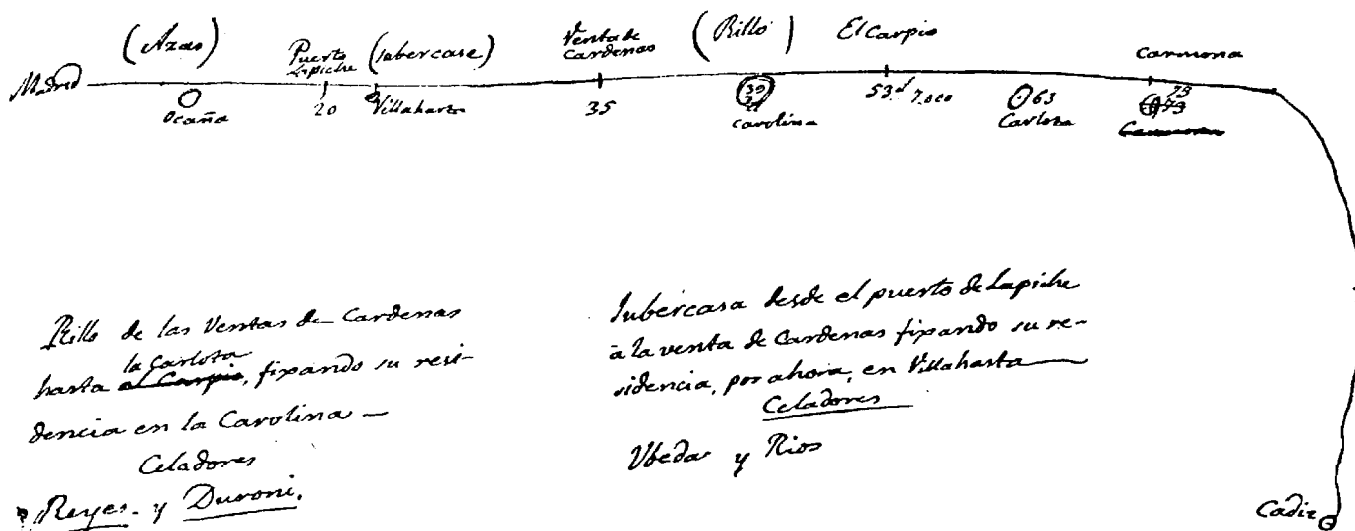 (Azas)
Puerto
Lapiche
(Subercase)
Venta de
Cardenas
(Rillo)
El Carpio
Carmona
Madrid
Ocaña
20
Villaharta
35
39
Carolina
53
7.000
63
Carlota
73
73
Carmona
Rillo de las Ventas de Cardenas
la Carlota
hasta el Carpio, fixando su resi-
dencia en la Carolina —
Celadores
Reyes y Duroni.
Subercasa desde el puerto de Lapiche
à la venta de Cardenas fixando su re-
sidencia, por ahora, en Villaharta —
Celadores
Ubeda y Rios
Cadiz